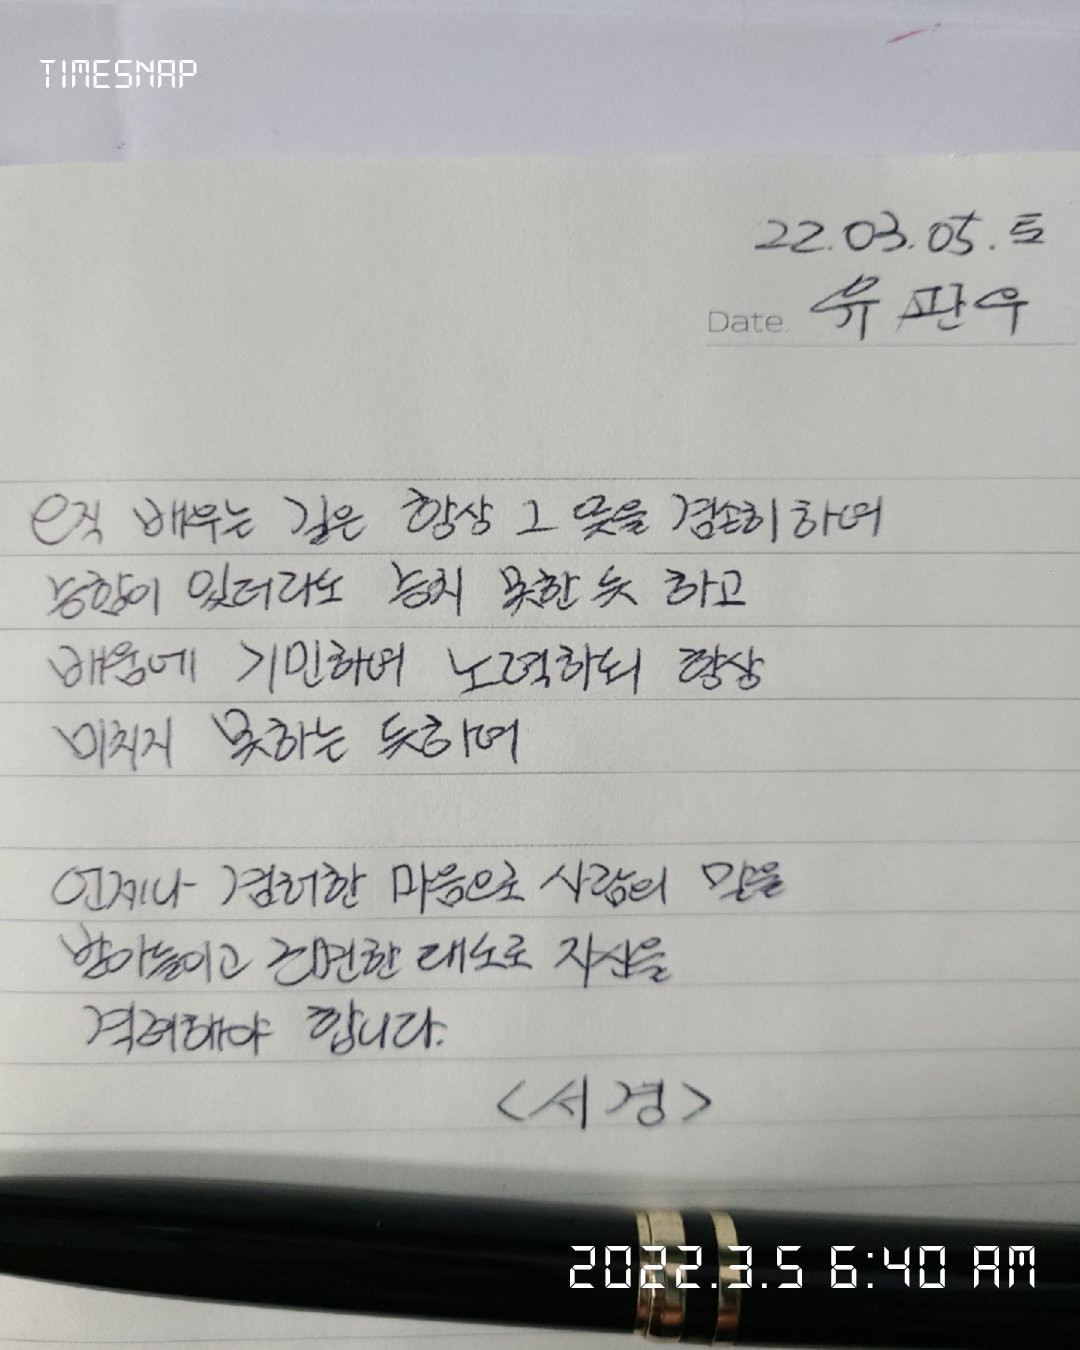 TIMESNAP
22.03.05.토
Date. 유판우
오직 배우는 길은 항상 그 뜻을 겸손히 하며
능함이 있더라도 능치 못한 듯 하고
배움에 기민하며 노력하되 항상
미치지 못하는 듯하며
언제나 겸허한 마음으로 사람의 말을
받아들이고 근면한 태도로 자신을
격려해야 합니다.
<서경>
2022.3.5 6:40 AM